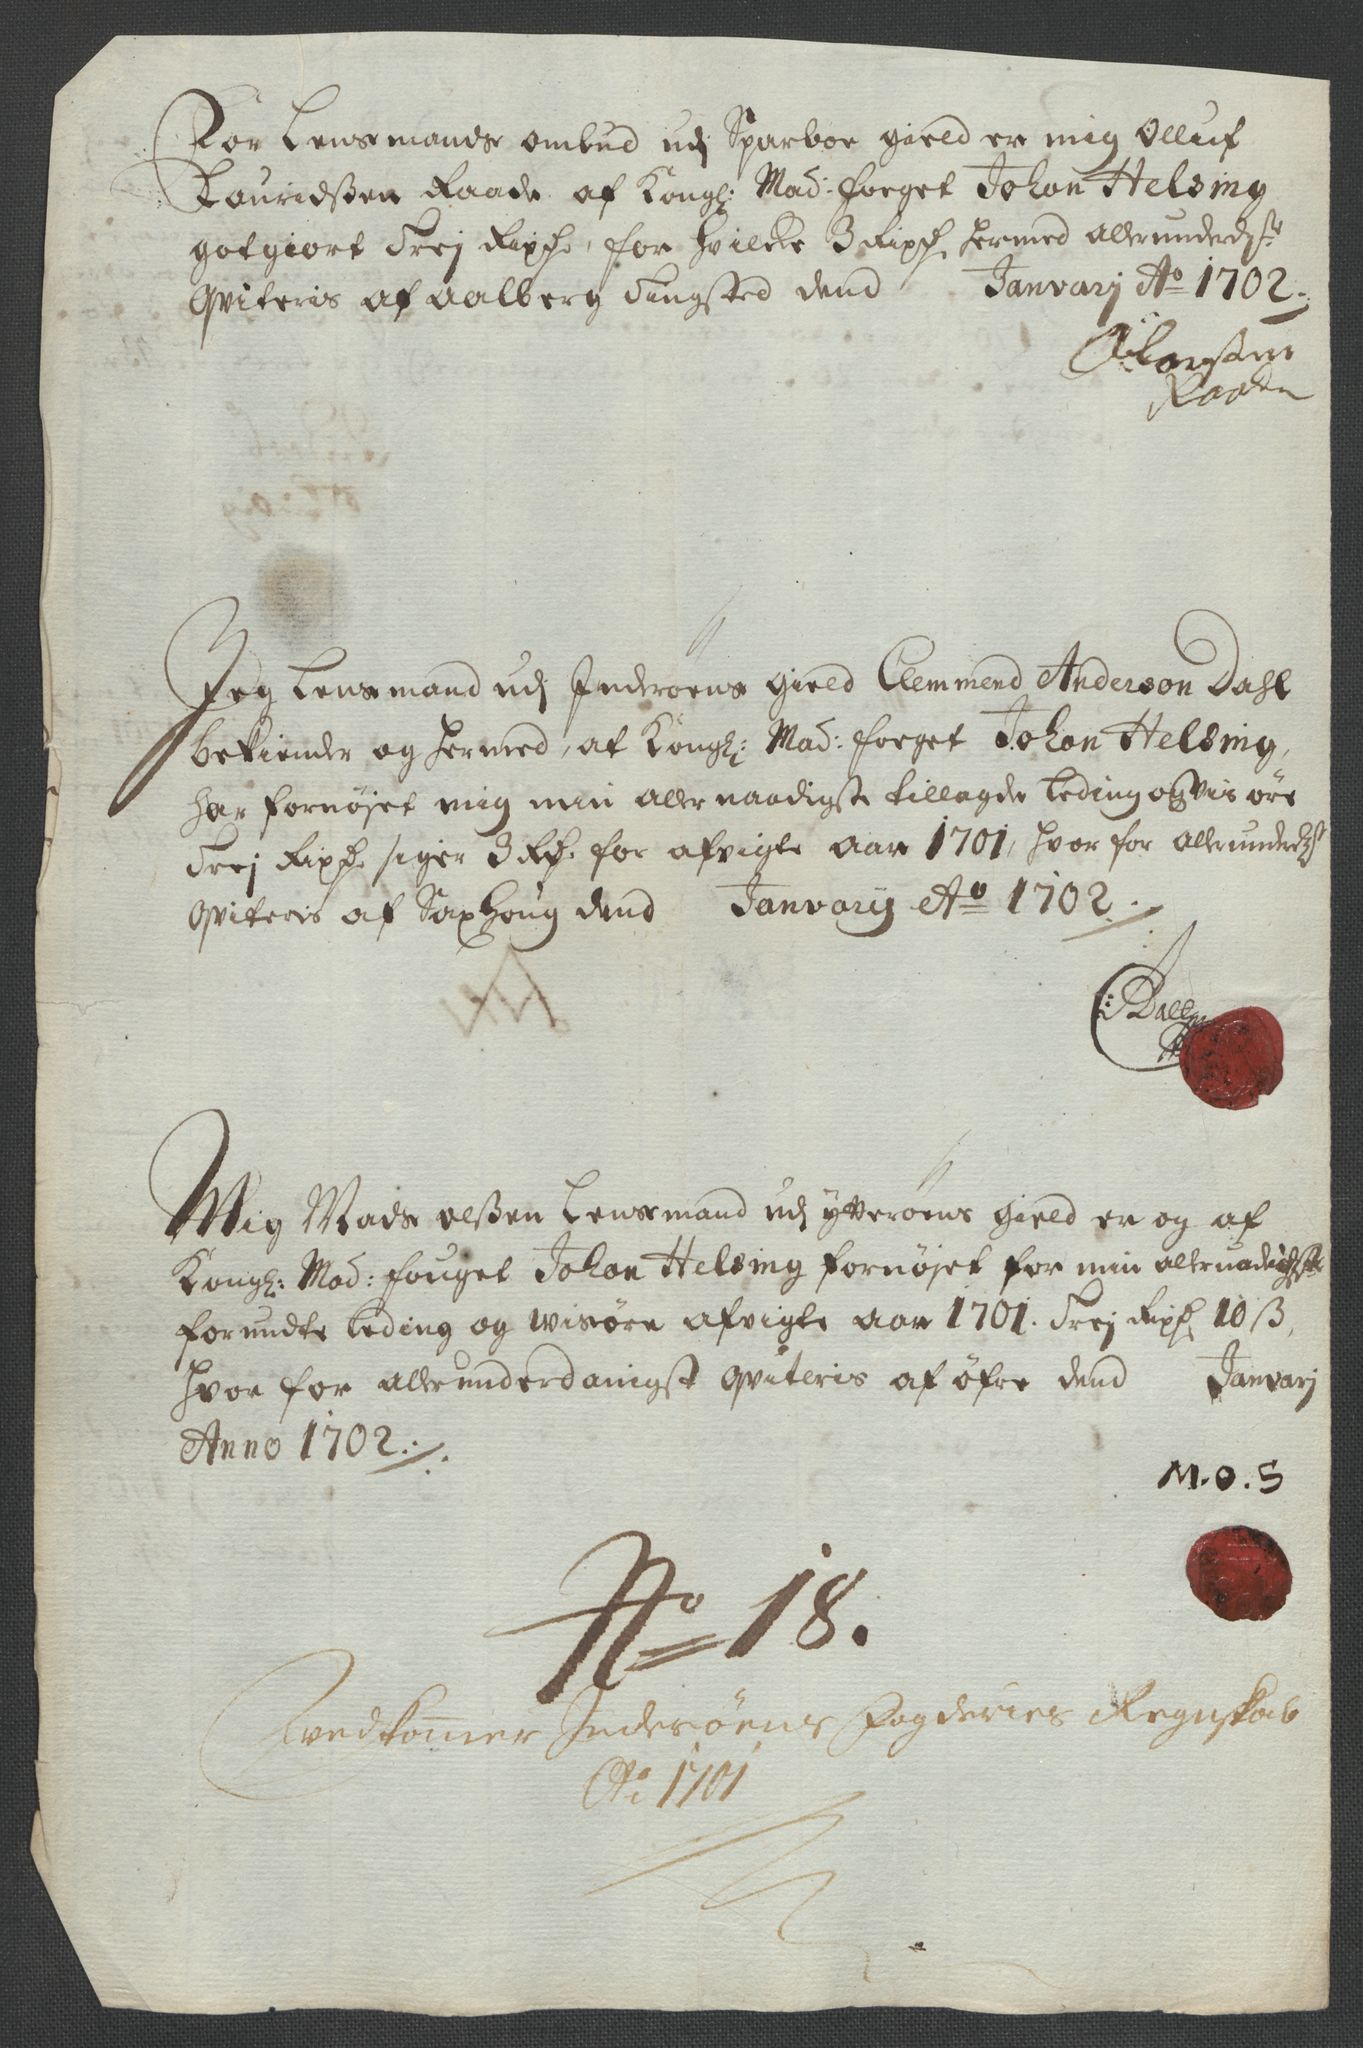 For Lensmands ombud udj Sparboe gield er mig Olluf
Louridssen Raade af Kongl: May: foeget Johan Helsing
gotgiort Trej Rixdr, for hvilcke 3 Rixdr hermed allerunderdst
qviteris af Aalberg Tingsted dend Janvarj Ao 1702.
O: Larssøn
Raade
Jeg Lensmand udj Inderøens gield Clemmend Anderson Dahl
bekiender og hermed, at Kongl: May: foeget Johan Helsing,
har fornøjet mig min allernaadigst tillagde leding og vis øre
Trej Rixdr siger 3 Rdr. for afvigte aar 1701, hvor for allerunderdst
qviteris af Saxhoug dend Janvarij Ao 1702.
C: Dall
Mig Mads olssen Lensmand udj ytterøens gield er og af
Kongl: May: fouget Johan Helsing fornøjet for min allernaadigste
forundte leding og wisøre afvigte aar 1701. Trej Rixdr 10 ß,
hvor for allerunderdanigst qviteris af øfre dend Janvarj
Anno 1702.
M.O.S
No 18.
Vedkommer Inderøens Fogderies Regnskab
Ao 1701